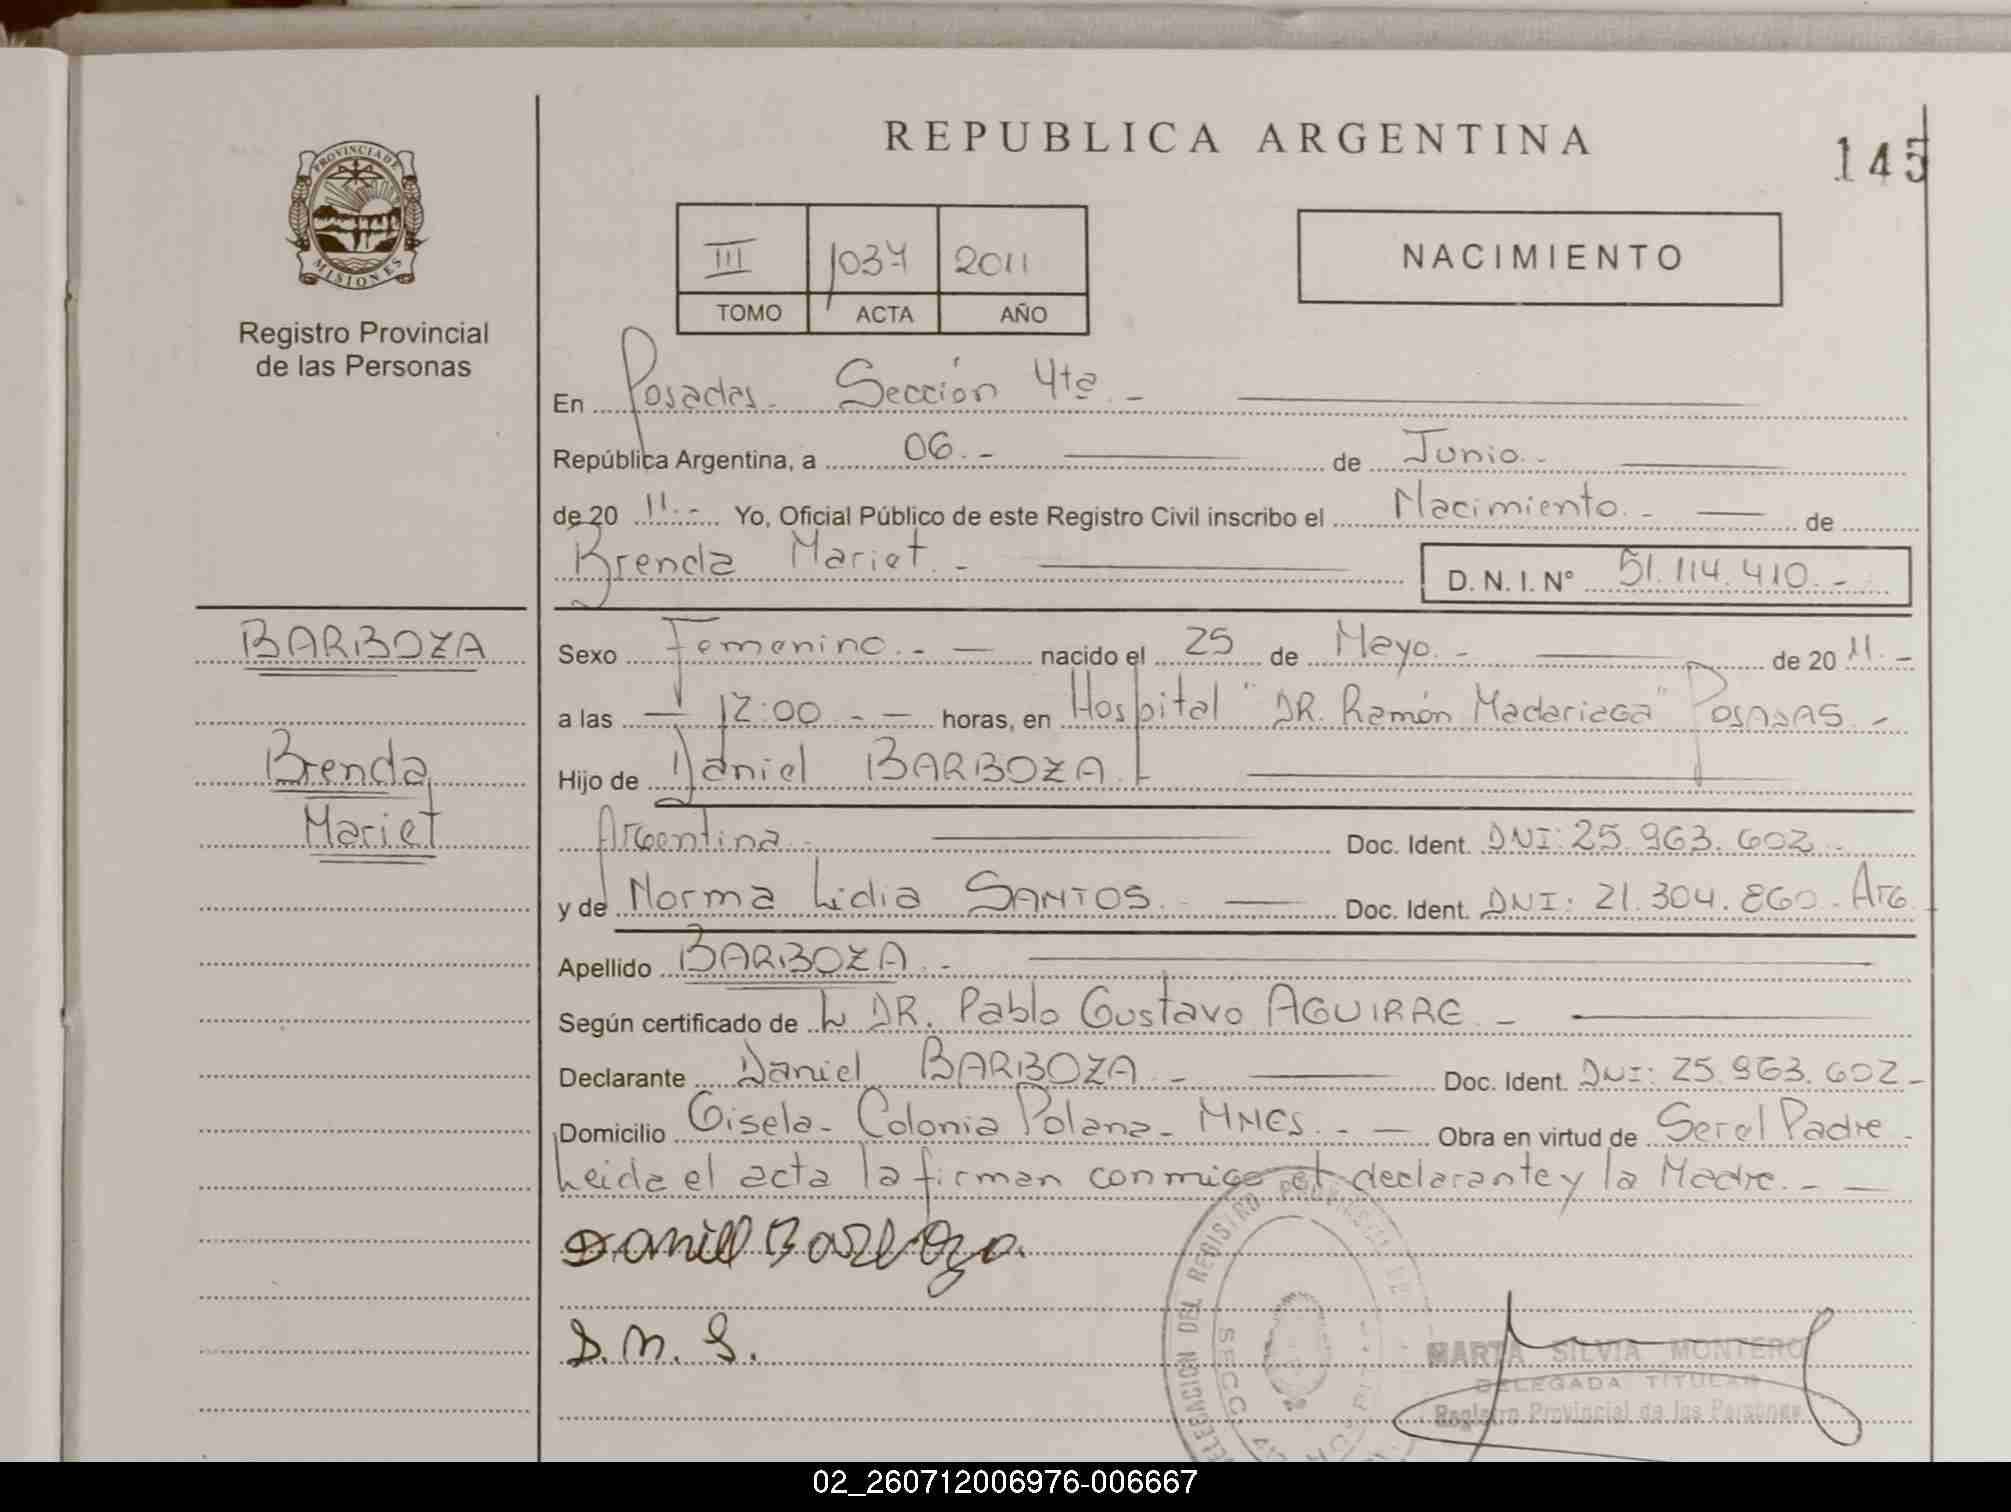 REPUBLICA ARGENTINA
145
PROVINCIA DE
MISIONES
Registro Provincial
de las Personas
III 1037 2011
TOMO ACTA AÑO
NACIMIENTO
En Posadas - Sección 4ta. -
República Argentina, a 06. - de Junio. -
de 20 11. - Yo, Oficial Público de este Registro Civil inscribo el Nacimiento. - de
Brenda Mariet. - D. N. I. N° 51.114.410. -
BARBOZA
Brenda
Mariet
Sexo Femenino. - nacido el 25 de Mayo. - de 20 11. -
a las - 12:00 - - horas, en Hospital "DR. Ramón Madariaga" POSADAS. -
Hijo de Daniel BARBOZA. -
Argentina. - Doc. Ident. DNI: 25.963.602. -
y de Norma Lidia SANTOS. - Doc. Ident. DNI: 21.304.860. Arg.
Apellido BARBOZA. -
Según certificado de DR. Pablo Gustavo AGUIRRE. -
Declarante Daniel BARBOZA. - Doc. Ident. DNI: 25.963.602 -
Domicilio Gisela - Colonia Polana - MNES. - - Obra en virtud de Ser el Padre -
Leida el acta la firman conmigo el declarante y la Madre. - -
Daniel Barboza.
MARTA SILVIA MONTERO
DELEGADA TITULAR
Registro Provincial de las Personas
DELEGACION DEL REGISTRO PROVINCIAL DE
SECC. 4
02_260712006976-006667